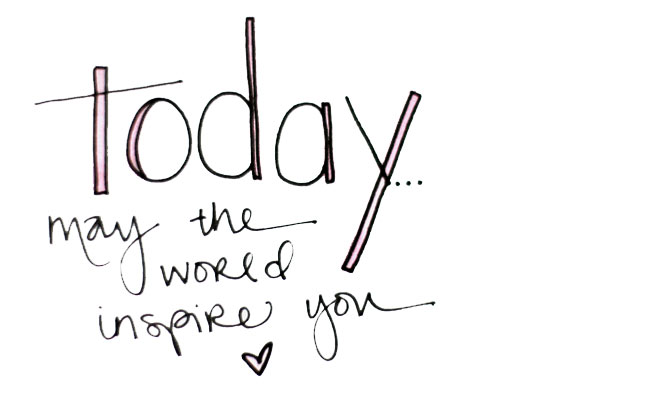 today...
may the
world
inspire you